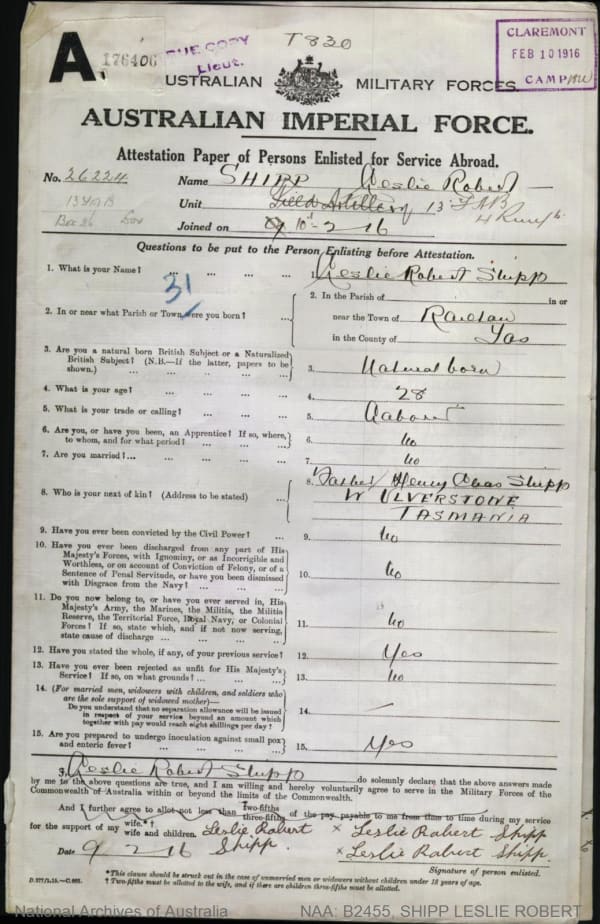 T830
CLAREMONT
FEB 10 1916
CAMP
A.
176406
TRUE COPY
Lieut.
AUSTRALIAN MILITARY FORCES.
AUSTRALIAN IMPERIAL FORCE.
Attestation Paper of Persons Enlisted for Service Abroad.
No. 26224 Name SHIPP Leslie Robert
Unit Field Artillery 13 FAB
Joined on 10-2-16
Questions to be put to the Person Enlisting before Attestation.
1. What is your Name? ... ... ... ... 1. Leslie Robert Shipp
31
2. In or near what Parish or Town were you born? ...
2. In the Parish of in or
near the Town of
in the County of Tas
3. Are you a natural born British Subject or a Naturalized
British Subject? (N.B.—If the latter, papers to be
shown.) ... ... ... ... 3. Natural born
4. What is your age? ... ... ... ... 4. 28
5. What is your trade or calling? ... ... ... 5. Labourer
6. Are you, or have you been, an Apprentice? If so, where,
to whom, and for what period? ... ... ... 6. No
7. Are you married? ... ... ... ... 7. No
8. Who is your next of kin? (Address to be stated) ...
8. Father Henry Shipp
W ULVERSTONE
TASMANIA
9. Have you ever been convicted by the Civil Power? ... 9. No
10. Have you ever been discharged from any part of His
Majesty's Forces, with Ignominy, or as Incorrigible and
Worthless, or on account of Conviction of Felony, or of a
Sentence of Penal Servitude, or have you been dismissed
with Disgrace from the Navy? ... ... ... 10. No
11. Do you now belong to, or have you ever served in, His
Majesty's Army, the Marines, the Militia, the Militia
Reserve, the Territorial Force, Royal Navy, or Colonial
Forces? If so, state which, and if not now serving,
state cause of discharge ... ... ... 11. No
12. Have you stated the whole, if any, of your previous service? 12. Yes
13. Have you ever been rejected as unfit for His Majesty's
Service? If so, on what grounds? ... ... ... 13. No
14. (For married men, widowers with children, and soldiers who
are the sole support of widowed mother)—
Do you understand that no separation allowance will be issued
in respect of your service beyond an amount which
together with pay would reach eight shillings per day? 14. —
15. Are you prepared to undergo inoculation against small pox
and enteric fever? ... ... ... ... 15. Yes
I, Leslie Robert Shipp do solemnly declare that the above answers made
by me to the above questions are true, and I am willing and hereby voluntarily agree to serve in the Military Forces of the
Commonwealth of Australia within or beyond the limits of the Commonwealth.
And I further agree to allot not less than two-fifths three-fifths of the pay payable to me from time to time during my service
for the support of my wife.*† wife and children. Leslie Robert Shipp × Leslie Robert Shipp
Date 9 2 16 × Leslie Robert Shipp.
Signature of person enlisted.
*This clause should be struck out in the case of unmarried men or widowers without children under 18 years of age.
† Two-fifths must be allotted to the wife, and if there are children three-fifths must be allotted.
National Archives of Australia NAA: B2455, SHIPP LESLIE ROBERT